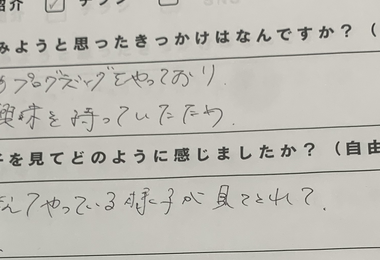 紹介 チラシ
みようと思ったきっかけはなんですか?(
プログラミングをやっており
興味を持っていたため
子を見てどのように感じましたか?(自由
んでやっている様子が見てとれて、